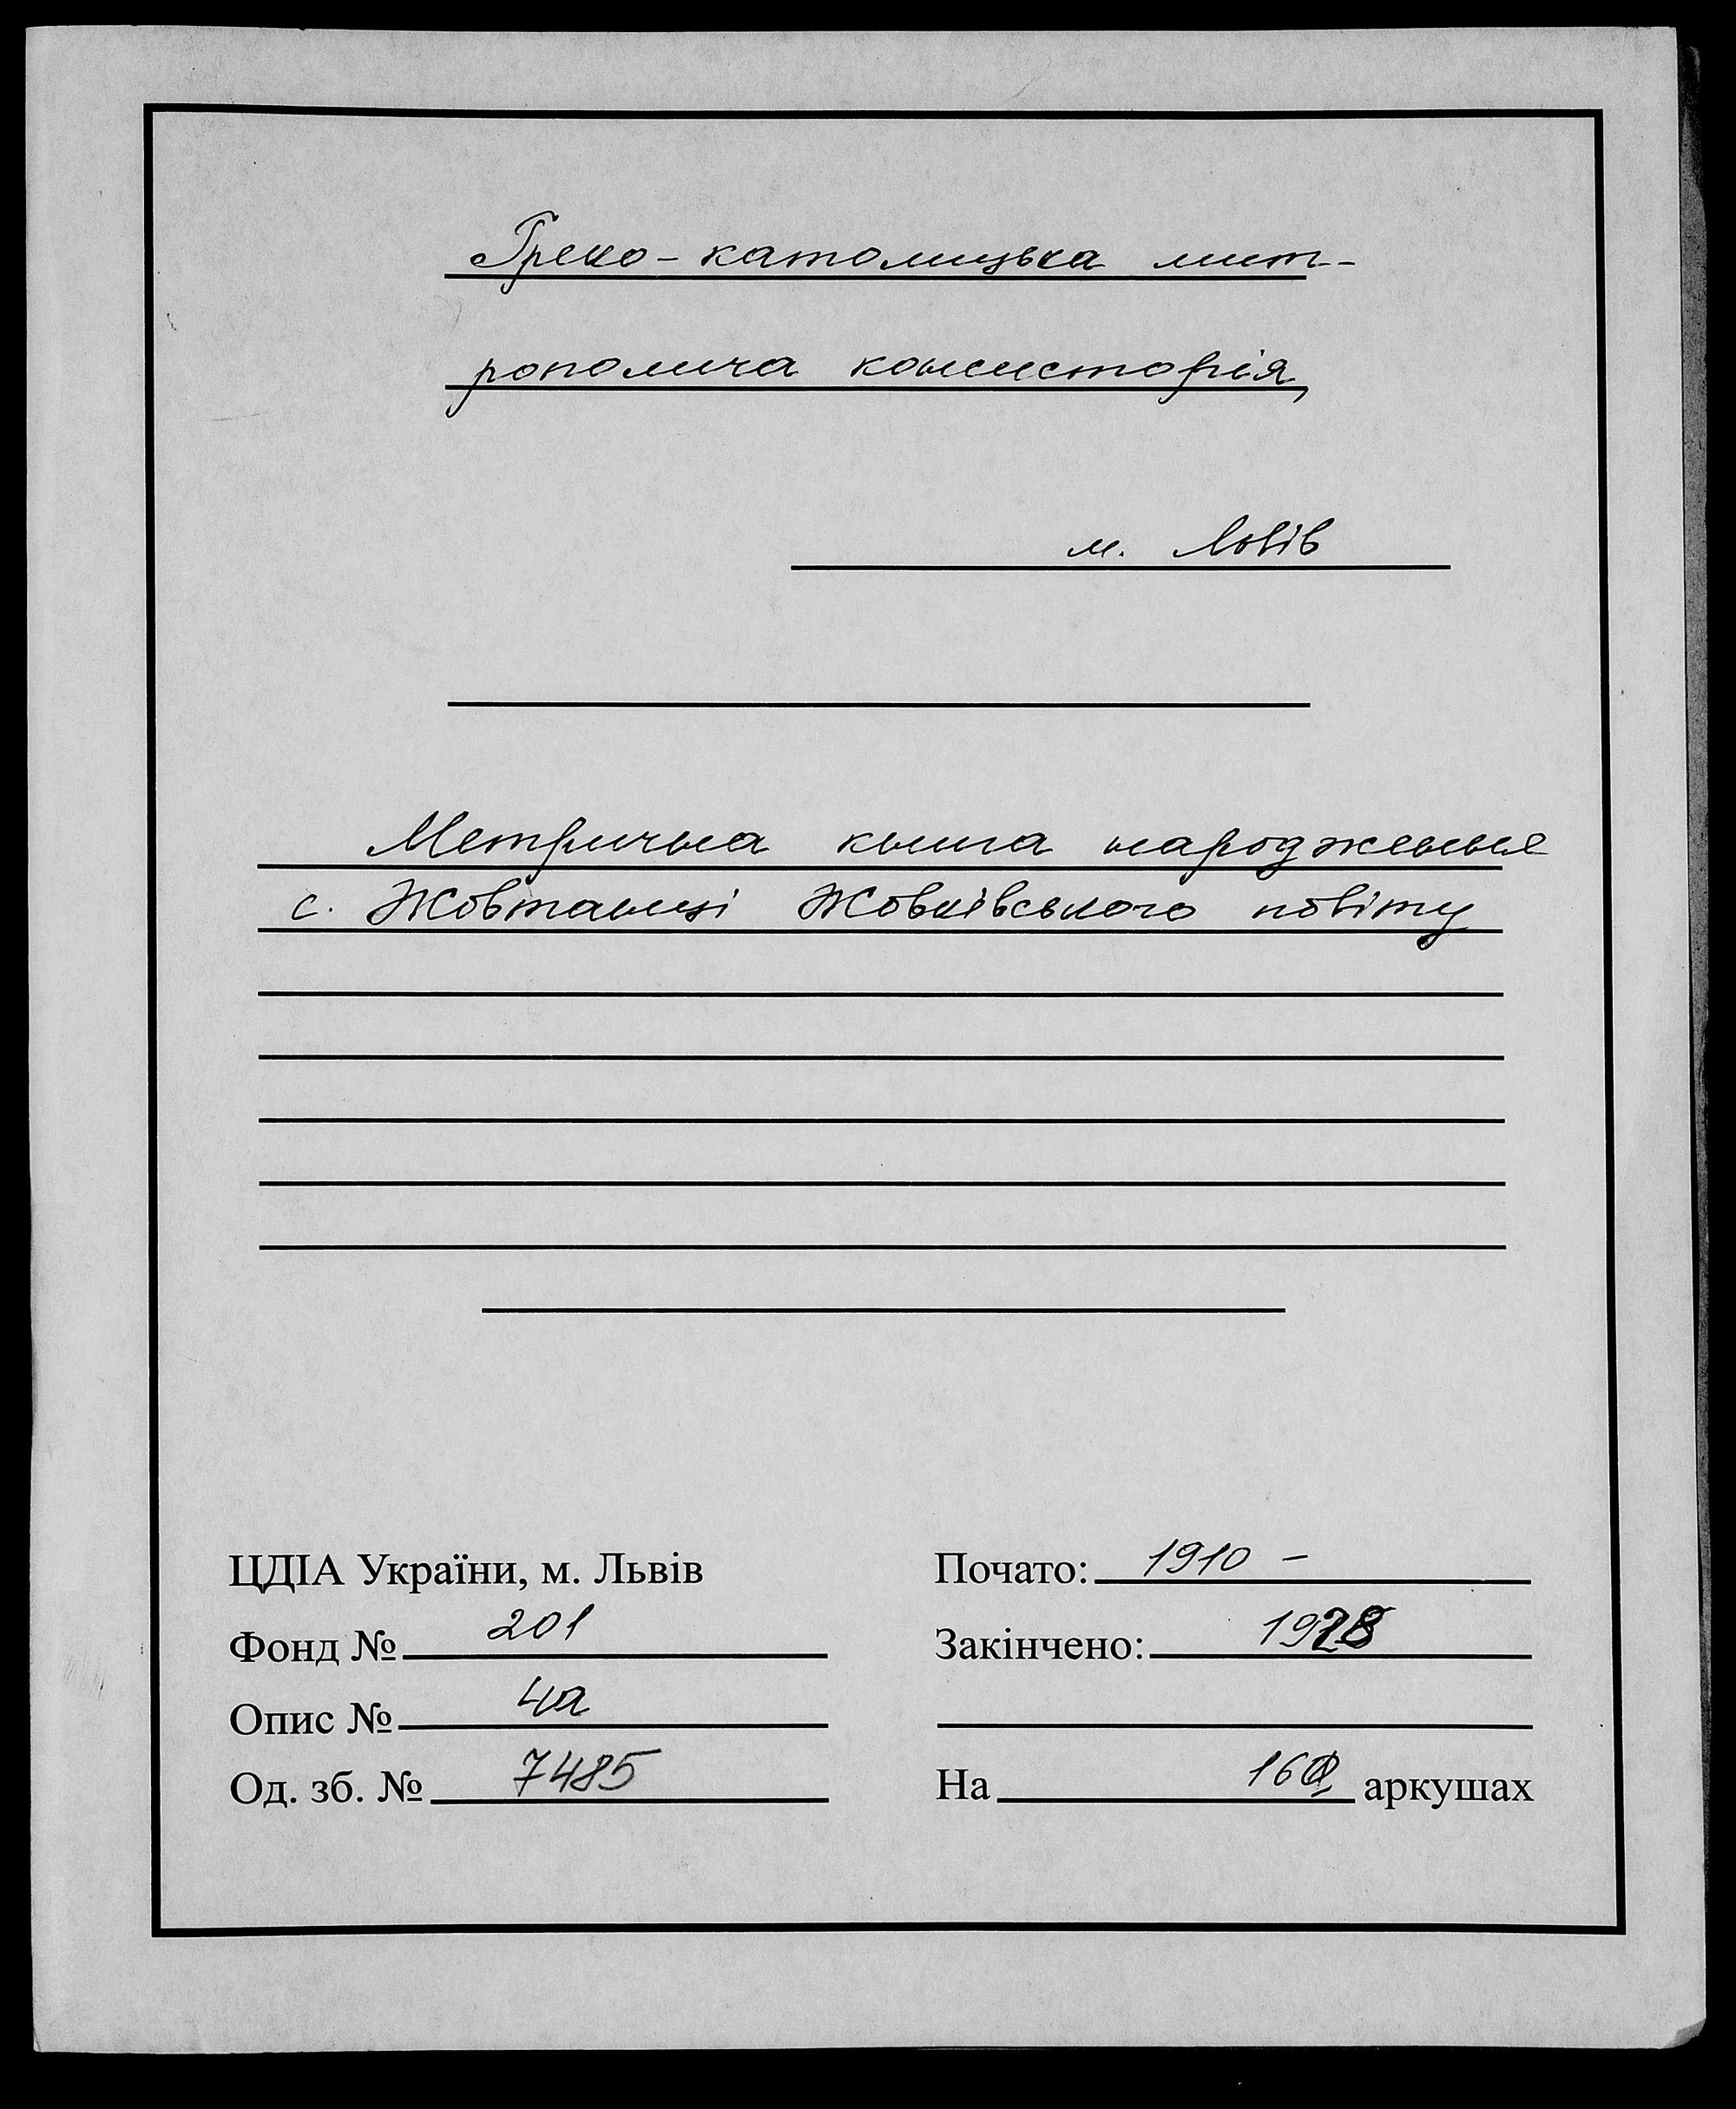 Греко-католицька мит-
рополича консисторія,
м. Львів
Метрична книга народження
с. Жовтанці Жовківського повіту
ЦДІА України, м. Львів
Фонд № 201
Опис № 4а
Од. зб. № 7485
Почато: 1910 –
Закінчено: 1928
На аркушах